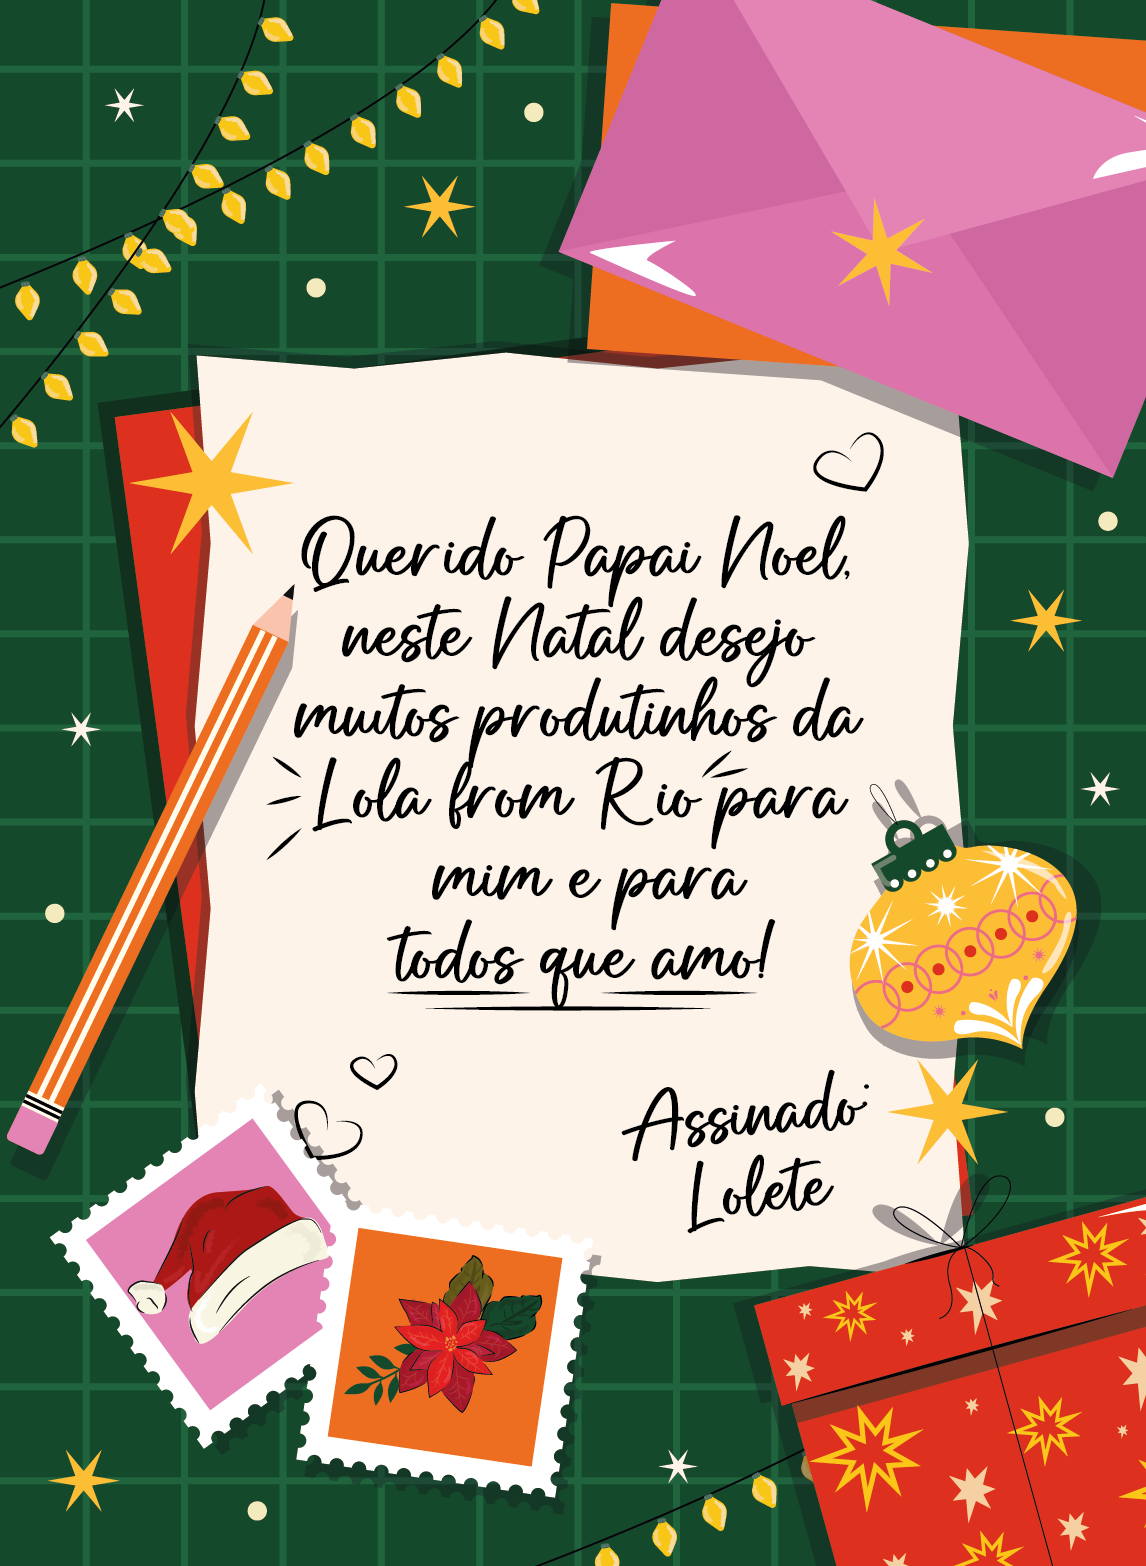 Querido Papai Noel,
neste Natal desejo
muitos produtinhos da
Lola from Rio para
mim e para
todos que amo!
Assinado:
Lolete